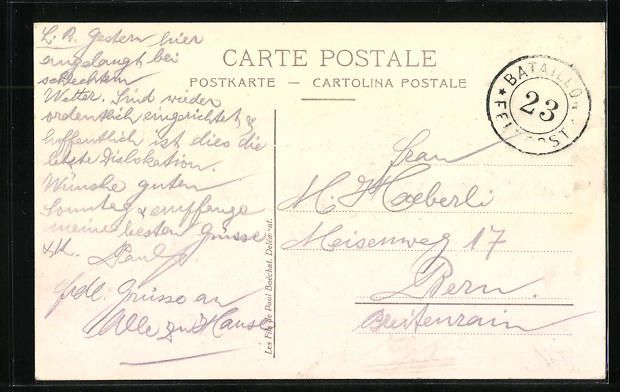 CARTE POSTALE
POSTKARTE — CARTOLINA POSTALE
BATAILLON
23
FELDPOST
L. P. Gestern hier
angelangt bei
schlechtem
Wetter. Sind wieder
ordentlich eingerichtet &
hoffentlich ist dies die
letzte Dislokation.
Wünsche guten
Sonntag & empfange
meine besten Grüsse
Paul
frdl. Grüsse an
Alle zu Hause
Les Fils de Paul Boéchat, Delémont.
Frau
M. Haeberli
Meisenweg 17
Bern.
Breitenrain